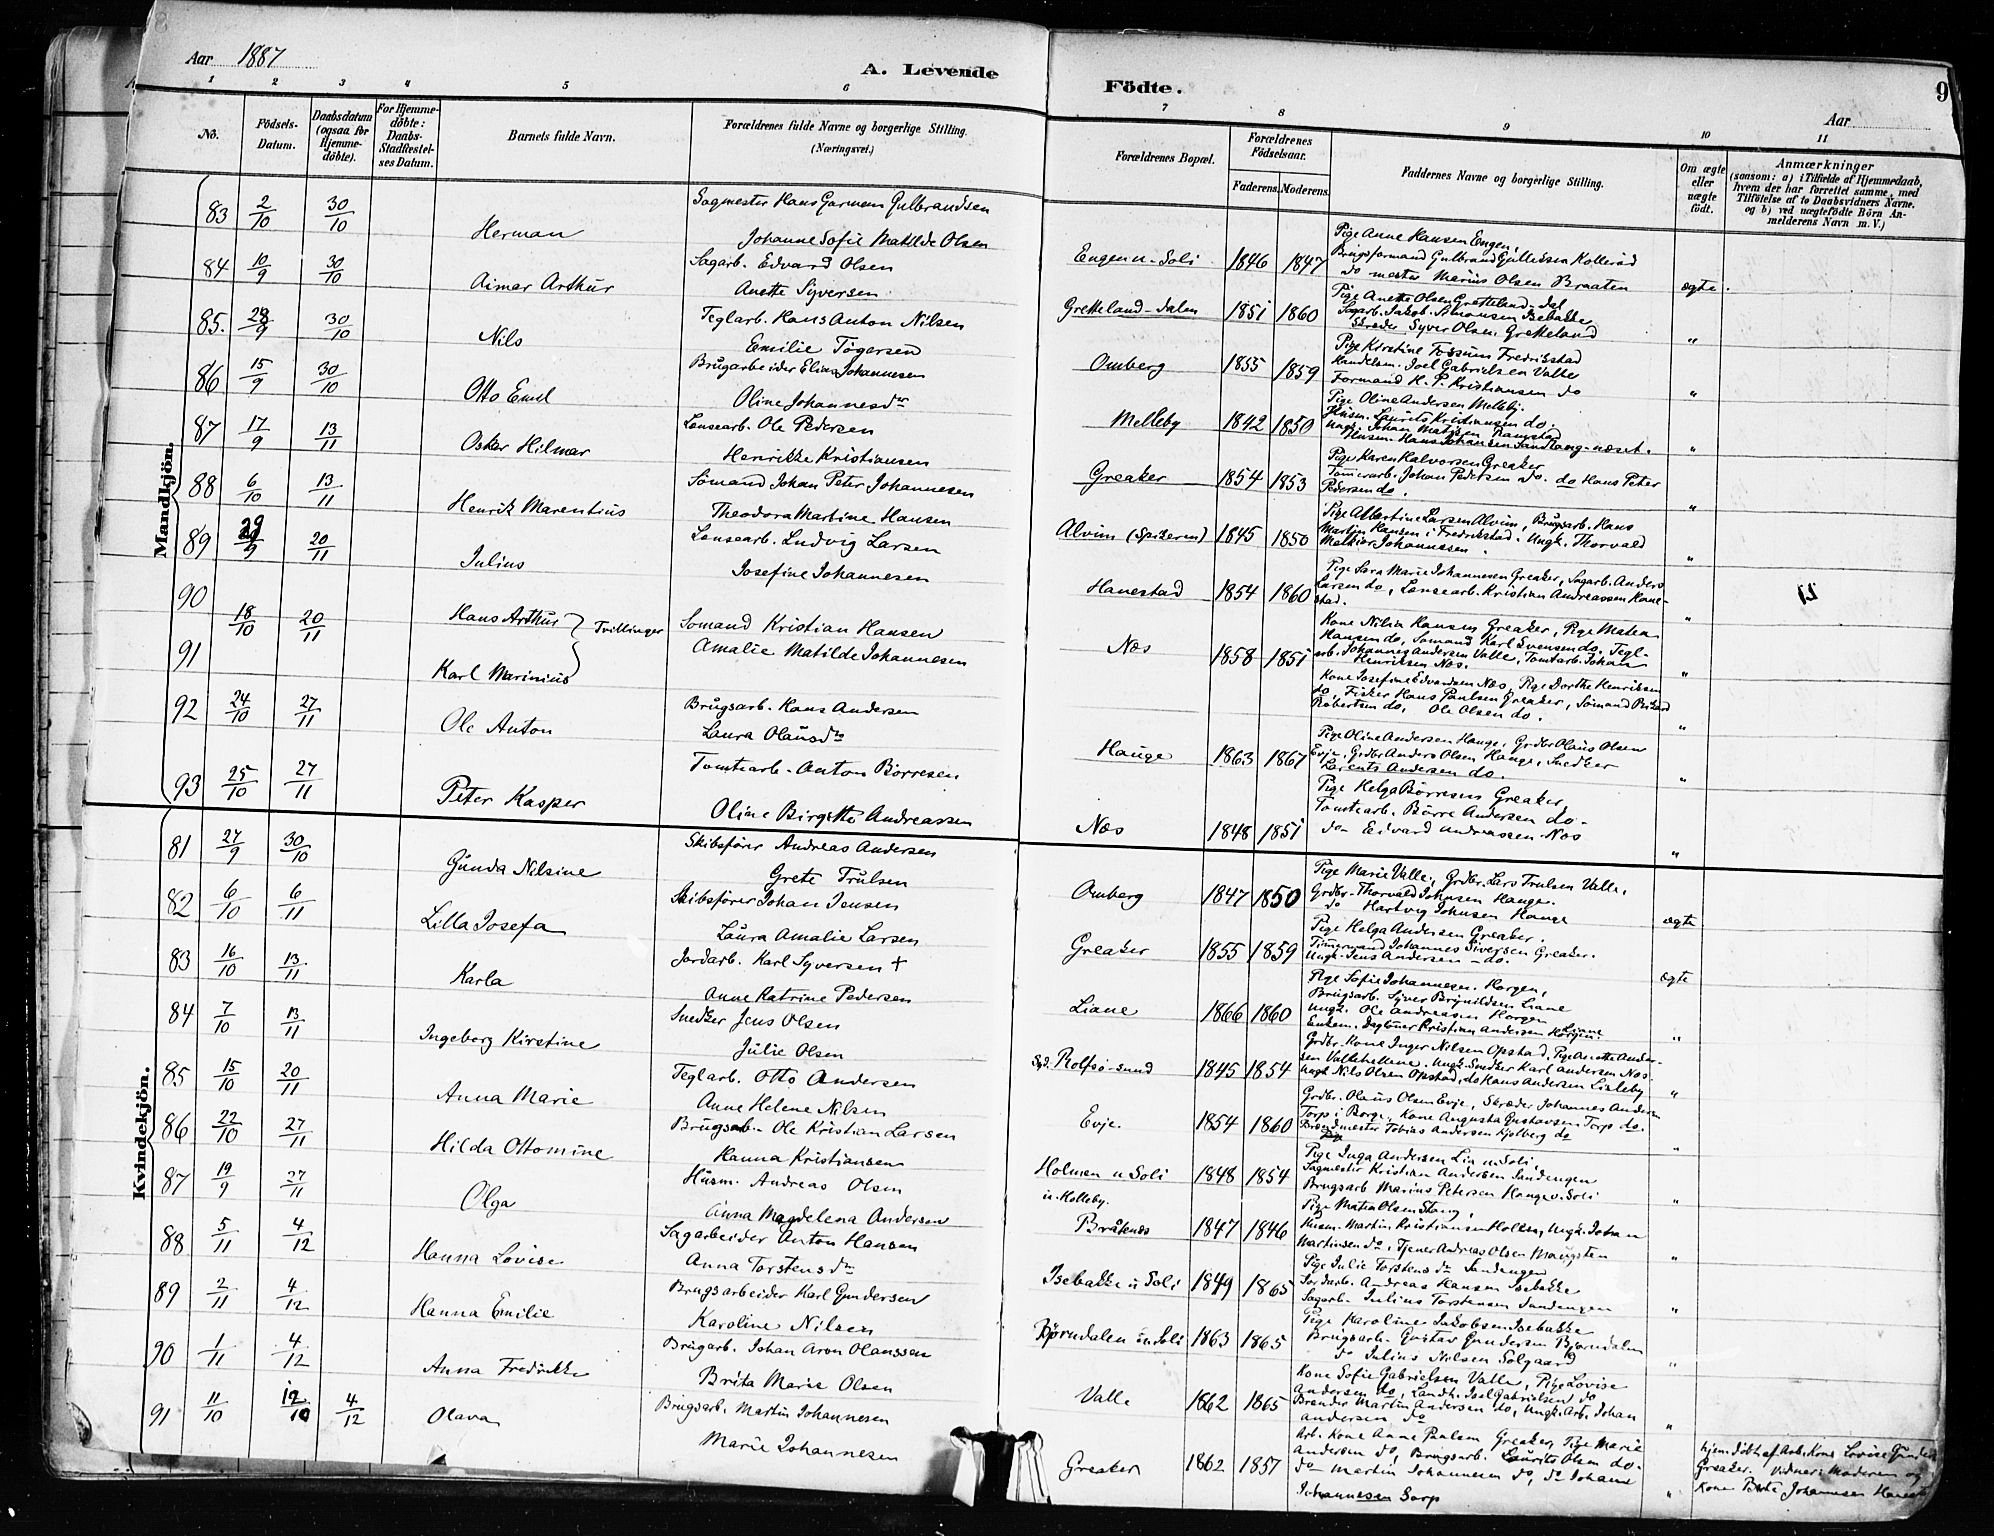 Aar 1887
A. Levende
Födte.
9
Aar
1 2 3 4 5 6
7 8 9 10 11
No.
Födsels-Datum.
Daabsdatum (ogsaa for Hjemme-döbte).
For Hjemme-döbte: Daabs-Stadfestel-ses Datum.
Barnets fulde Navn.
Forældrenes fulde Navne og borgerlige Stilling. (Næringsvei.)
Forældrenes Bopæl.
Forældrenes Födselsaar.
Faderens. Moderens.
Faddernes Navne og borgerlige Stilling.
Om ægte eller uægte födt.
Anmærkninger
(saasom: a) i Tilfælde af Hjemmedaab,
hvem der har forrettet samme, med
Tilföielse af to Daabsvidners Navne.
og b) ved uægtefödte Börn An-
melderens Navn m. V.)
Mandkjön.
83 2/10 30/10 Herman
Sagmester Hans Garmem Gulbrandsen
Johanne Sofie Matilde Olsen
Engen u. Soli 1846 1847
Pige Anne Hansen Engen,
Brugsformand Gulbrand Gulliksen Kollerød
do mester Marius Olsen Braaten
ægte.
84 10/9 30/10 Aimar Arthur
Sagarb. Edvard Olsen
Anette Syversen
Gretteland-dalen 1851 1860
Pige Anette Olsen Gretteland-dal
Sagarb. Jakob Simonsen Isebakke
Skræder Syver Olsen Gretteland
"
85. 28/9 30/10 Nils
Teglarb. Hans Anton Nilsen
Emilie Tögersen
Omberg 1855 1859
Pige Kirstine Fossum Fredrikstad
Handelsm. Joel Gabrielsen Valle
Formand H. P. Kristiansen do
"
86 15/9 30/10 Otto Emil
Brugarbeider Elias Johannesen
Oline Johannesdr
Melleby 1842 1850
Pige Oline Andersen Melleby.
Husm. Laurits Kristiansen do.
Ungk. Johan Matisen Ramstad
Husm. Hans Johansen Sandtang-næset.
"
87 17/9 13/11 Oskar Hilmar
Lensearb. Ole Pedersen
Henrikke Kristiansen
Greaker 1854 1853
Pige Karen Halvorsen Greaker
Tømmerarb. Johan Pedersen do. do Hans Peter
Pedersen do.
"
88 6/10 13/11 Henrik Marentius
Sömand Johan Peter Johannesen
Theodora Martine Hansen
Alvim (Spikeren) 1845 1850
Pige Albertine Larsen Alvim, Brugsarb. Hans
Martin Hansen i Fredrikstad. Ungk. Thorvald
Melkior Johannessen.
"
89 29/9 20/11 Julius
Lensearb. Ludvig Larsen
Josefine Johannesen
Hanestad 1854 1860
Pige Sara Marie Johannesen Greaker, Sagarb. Anders
Larsen do, Lensearb. Kristian Andreassen Hane-
stad.
"
90 18/10 20/11 Hans Arthur
Tvillinger
Sömand Kristian Hansen
Amalie Matilde Johannesen
Næs 1858 1851
Kone Nilia Hansen Greaker, Pige Matea
Hansen do, Sömand Karl Svensen do. Tegl-
arb. Johannes Andersen Valle, Tomtarb. Johan
Henriksen Næs.
"
91 Karl Marinius
Kone Josefine Edvardsen Næs, Pige Dorthe Henriksen
do, Fisker Hans Paulsen Greaker, Sömand Rikard
Robertsen do, Ole Olsen do.
"
92 24/10 27/11 Ole Anton
Brugsarb. Hans Andersen
Laura Olausdr
Hauge 1863 1867
Pige Oline Andersen Hauge, Grdbr Olaus Olsen
Evje. Grdbr. Anders Olsen Hauge, Snedker
Larents Andersen do.
"
93 25/10 27/11 Peter Kasper
Tomtearb. Anton Börresen
Oline Birgitte Andreassen
Næs 1848 1851
Pige Helga Börresen Greaker,
Tomtearb. Börre Andersen do.
do Edvard Andreassen Næs
"
Kvindekjön.
81 27/9 30/10 Gunda Nilsine
Skibsförer Andreas Andersen
Grete Trulsen
Omberg 1847 1850
Pige Marie Valle, Grdbr. Lars Trulsen Valle,
Grdbr. Thorvald Johnsen Hauge.
do Hartvig Johnsen Hauge
ægte
82 6/10 6/11 Lilla Josefa
Skibsförer Johan Jensen
Laura Amalie Larsen
Greaker 1855 1859
Pige Helga Andersen Greaker.
Tömmermand Johannes Siversen Greaker.
Ungk. Jens Andersen do.
ægte
83 16/10 13/11 Karla
Jordarb. Karl Syversen +
Anne Katrine Pedersen
Liane 1866 1860
Pige Sofie Johannesen. Horgen,
Brugsarb. Syver Brynildsen Liane
Ungk. Ole Andreasen Horgen
Enkem. Daglöner Kristian Andersen Horgen. Liane
"
84 7/10 13/11 Ingeborg Kirstine
Snedker Jens Olsen
Julie Olsen
Rolfsö-sund 1845 1854
Grdbr. Kone Inger Nilsen Opstad. Pige Anette Ander-
sen Vallehellene, Ungk. Snedker Karl Andersen Næs.
Ungk Nils Olsen Opstad, do Hans Andersen Lisleby
"
85 15/10 20/11 Anna Marie
Teglarb. Otto Andersen
Anne Helene Nilsen
Evje. 1854 1860
Grdbr. Olaus Olsen Evje, Skræder Johannes Andersen
Torp i Borge, Kone Augusta Gustavsen Torp do.
Brændmester Tobias Andersen Kjølberg do
"
86 22/10 27/11 Hilda Ottomine
Brugsarb. Ole Kristian Larsen
Hanna Kristiansen
Holmen u Soli 1848 1854
Pige Inga Andersen Lia u Soli,
Sagmester Kristian Andersen Sandengen
Brugsarb Marius Petersen Hauge u. Soli
"
87 19/9 27/11 Olga
Husm. Andreas Olsen
Anna Magdelena Andersen
u. Kolleby.
Bråtenæs 1847 1846
Pige Matia Olsen Stang,
Husm. Martin Kristiansen Holtem, Ungk. Johan
Martinsen do, Tjener Andreas Olsen Maugsten
"
88 5/11 4/12 Hanna Lovise
Sagarbeider Anton Hansen
Anna Torstensdr
Isebakke u Soli 1849 1865
Pige Julie Torstensdr Sandengen
Jordarb. Andreas Hansen Isebakke
Sagarb. Julius Torstensen Sandengen
"
89 2/11 4/12 Hanna Emilie
Brugsarbeider Karl Gundersen
Karoline Nilsen
Bjørndalen u. Soli 1863 1865
Pige Karoline Jakobsen Isebakke
Brugsarb. Gustav Gundersen Bjørndalen
do Julius Nilsen Solgaard
"
90 1/11 4/12 Anna Fredrikke
Brugarb. Johan Aron Olaussen
Brita Marie Olsen
Valle 1862 1865
Kone Sofie Gabrielsen Valle, Pige Lovise
Andersen do, Landh. Joel Gabrielsen do
Brænder Martin Andersen do, Ungk. Arb. Johan
Andersen do
"
91 11/10 12/10 4/12 Olava
Brugsarb. Martin Johannesen
Marie Johannesen
Greaker 1862 1857
Arb. Kone Anne Paulsen Greaker, Pige Marie
Andersen do, Brugsarb. Laurits Olsen do.
do Martin Johannesen do, do Johans
Johannesen Sarp
"
hjem. döbt af Arb. Kone Lovise
Greaker. Vidner: Moderen og
Kone Johannesen